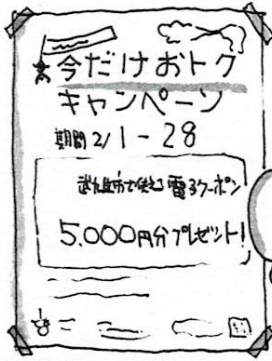 今だけおトク
キャンペーン
期間 2/1-28
で使える電子クーポン
5,000円分プレゼント!